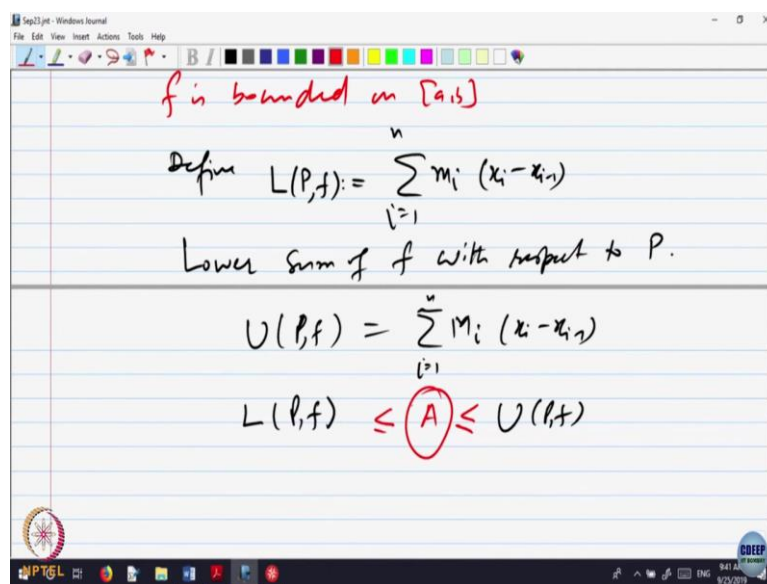 Sep23.jnt - Windows Journal
File Edit View Insert Actions Tools Help
B I
f is bounded on [a,b]
Define L(P,f) := n ∑ i=1 mi (xi - xi-1)
Lower Sum of f with respect to P.
U(P,f) = n ∑ i=1 Mi (xi - xi-1)
L(P,f) ≤ A ≤ U(P,f)
NPTEL
CDEEP
IIT BOMBAY
ENG
9:41 AM
9/25/2019